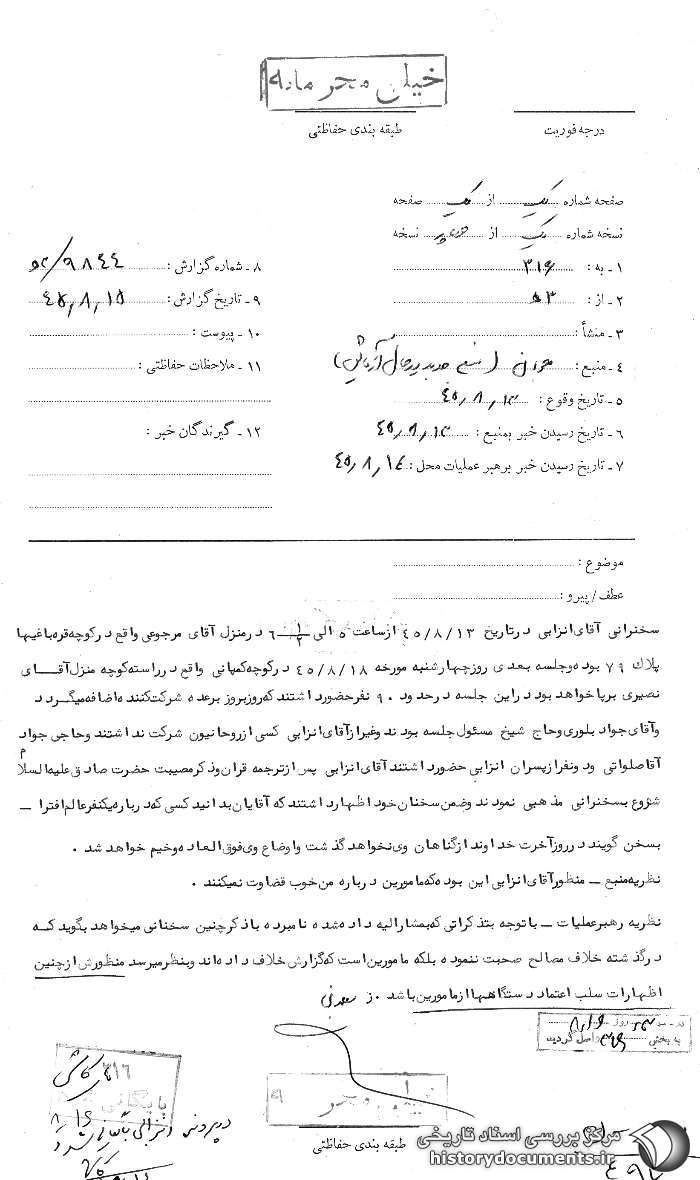 خیلی محرمانه
درجه فوریت
طبقه بندی حفاظتی
صفحه شماره یک از یک صفحه
نسخه شماره یک از نسخه
۱ - به : ۳۱۶
۲ - از : ۵۳
۳ - منشأ :
۴ - منبع :
۵ - تاریخ وقوع : ۴۵٫۸٫۱۳
۶ - تاریخ رسیدن خبر بمنبع : ۴۵٫۸٫۱۳
۷ - تاریخ رسیدن خبر برهبر عملیات محل : ۴۵٫۸٫۱۴
۸ - شماره گزارش : ۵۳/۹۸۴۴
۹ - تاریخ گزارش : ۴۵٫۸٫۱۵
۱۰ - پیوست :
۱۱ - ملاحظات حفاظتی :
۱۲ - گیرندگان خبر :
موضوع :
عطف / پیرو :
سخنرانی آقای انزابی در تاریخ ۴۵/۸/۱۳ از ساعت ۵ الی ۶ ۱/۲ در منزل آقای مرجوعی واقع در کوچه قره باغیها
پلاک ۷۹ بوده و جلسه بعدی روز چهارشنبه مورخه ۴۵/۸/۱۸ در کوچه کمپانی واقع در راسته کوچه منزل آقــای
نصیری برپا خواهد بود در این جلسه در حدود ۹۰ نفر حضور داشتند که روز بروز بر عده شرکت کننده اضافه میگردد
و آقای جواد بلوری و حاج شیخ مسئول جلسه بودند و غیر از آقای انزابی کسی از روحانیون شرکت نداشتند و حاجی جواد
آقا صلواتی و دو نفر از پسران انزابی حضور داشتند آقای انزابی پس از ترجمه قران و ذکر مصیبت حضرت صادق علیه السلام
شروع بسخنرانی مذهبی نمودند و ضمن سخنان خود اظهار داشتند که آقایان بدانید کسی که درباره یکنفر عالم افترا ـ
بسخن گویند در روز آخرت خداوند از گناهان وی نخواهد گذشت و اوضاع وی فوق العاده وخیم خواهد شد .
نظریه منبع ـ منظور آقای انزابی این بوده که مامورین درباره من خوب قضاوت نمیکنند .
نظریه رهبر عملیات ـ با توجه بتذکراتی که بمشارالیه داده شده نامبرده با ذکر چنین سخنانی میخواهد بگوید کــه
در گذشته خلاف مصالح صحبت ننموده بلکه مامورین است که گزارش خلاف داده اند و بنظر میرسد منظورش از چنین
اظهارات سلب اعتماد دستگاهها از مامورین باشد . ز
روز
به بخش ۳۱۶ واصل گردید
خیلی محرمانه
طبقه بندی حفاظتی
۳۱۶
بایگانی
در پرونده انزابی بایگانی شود
مرکز بررسی اسناد تاریخی
historydocuments.ir